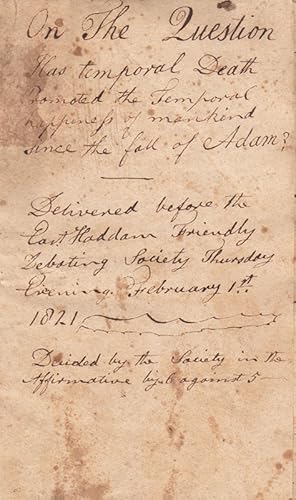 On The Question
Has temporal Death
Promoted the Temporal
happiness of mankind
since the fall of Adam?
Delivered before the
East Haddam Friendly
Debating Society Thursday
Evening February 1st
1821
Decided by the Society in the
Affirmative by 6 against 5